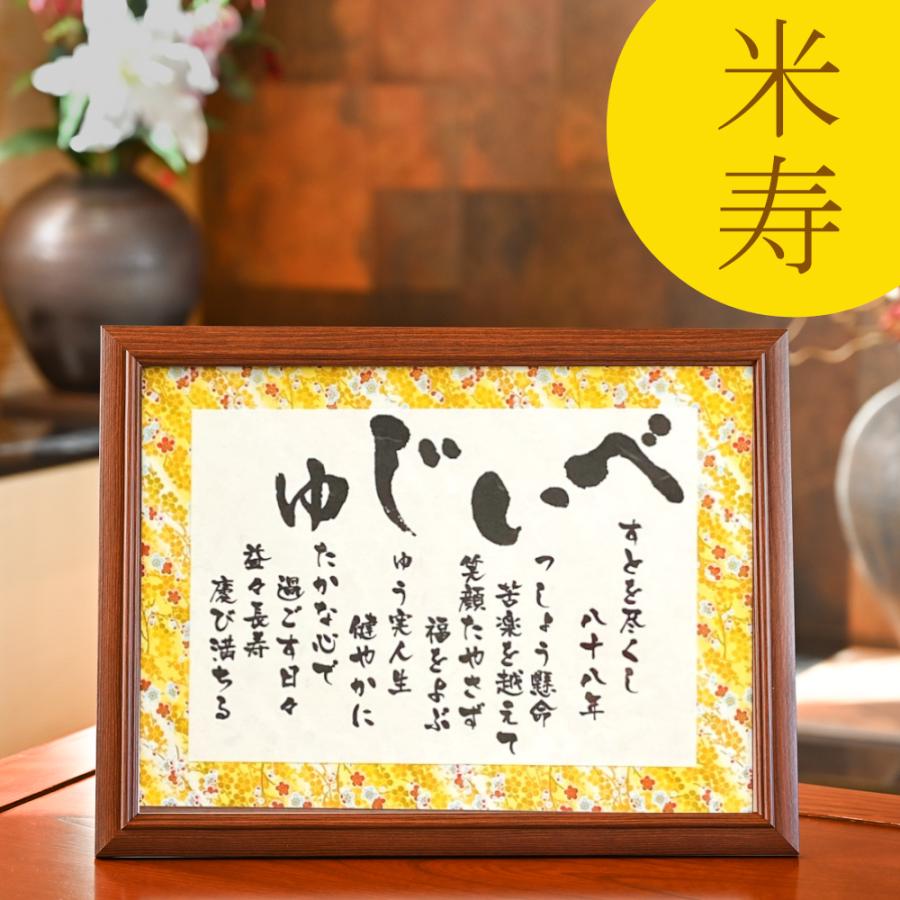 米寿
べいじゅ
すとを尽くし
八十八年
つしょう懸命
苦楽を越えて
笑顔たやさず
福をよぶ
ゆう実人生
健やかに
たかな心で
過ごす日々
益々長寿
慶び満ちる